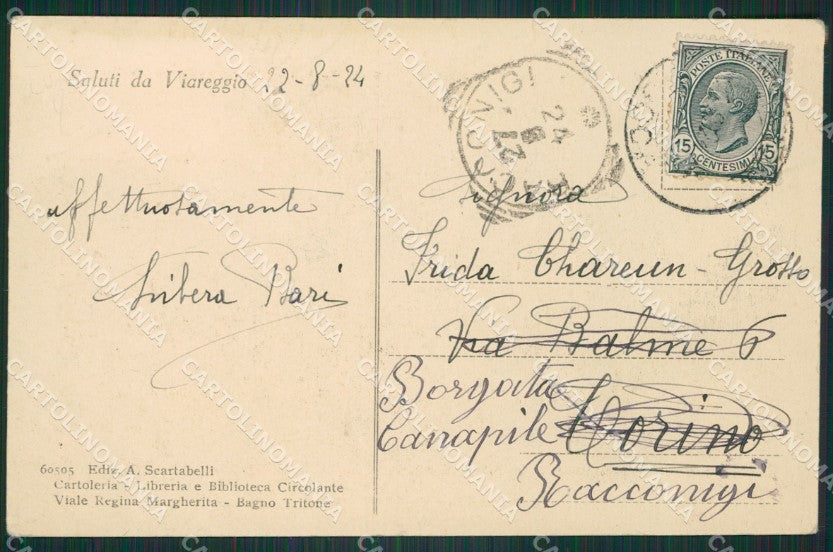 Saluti da Viareggio 22-8-24
affettuosamente
Libera Bari
60505 Ediz. A. Scartabelli
Cartoleria - Libreria e Biblioteca Circolante
Viale Regina Margherita - Bagno Tritone
POSTE ITALIANE
15 15
CENTESIMI
Signora
Frida Chareun - Grosso
Via Balme 6
Borgata
Canapile Torino
Racconigi
CARTOLINOMANIA